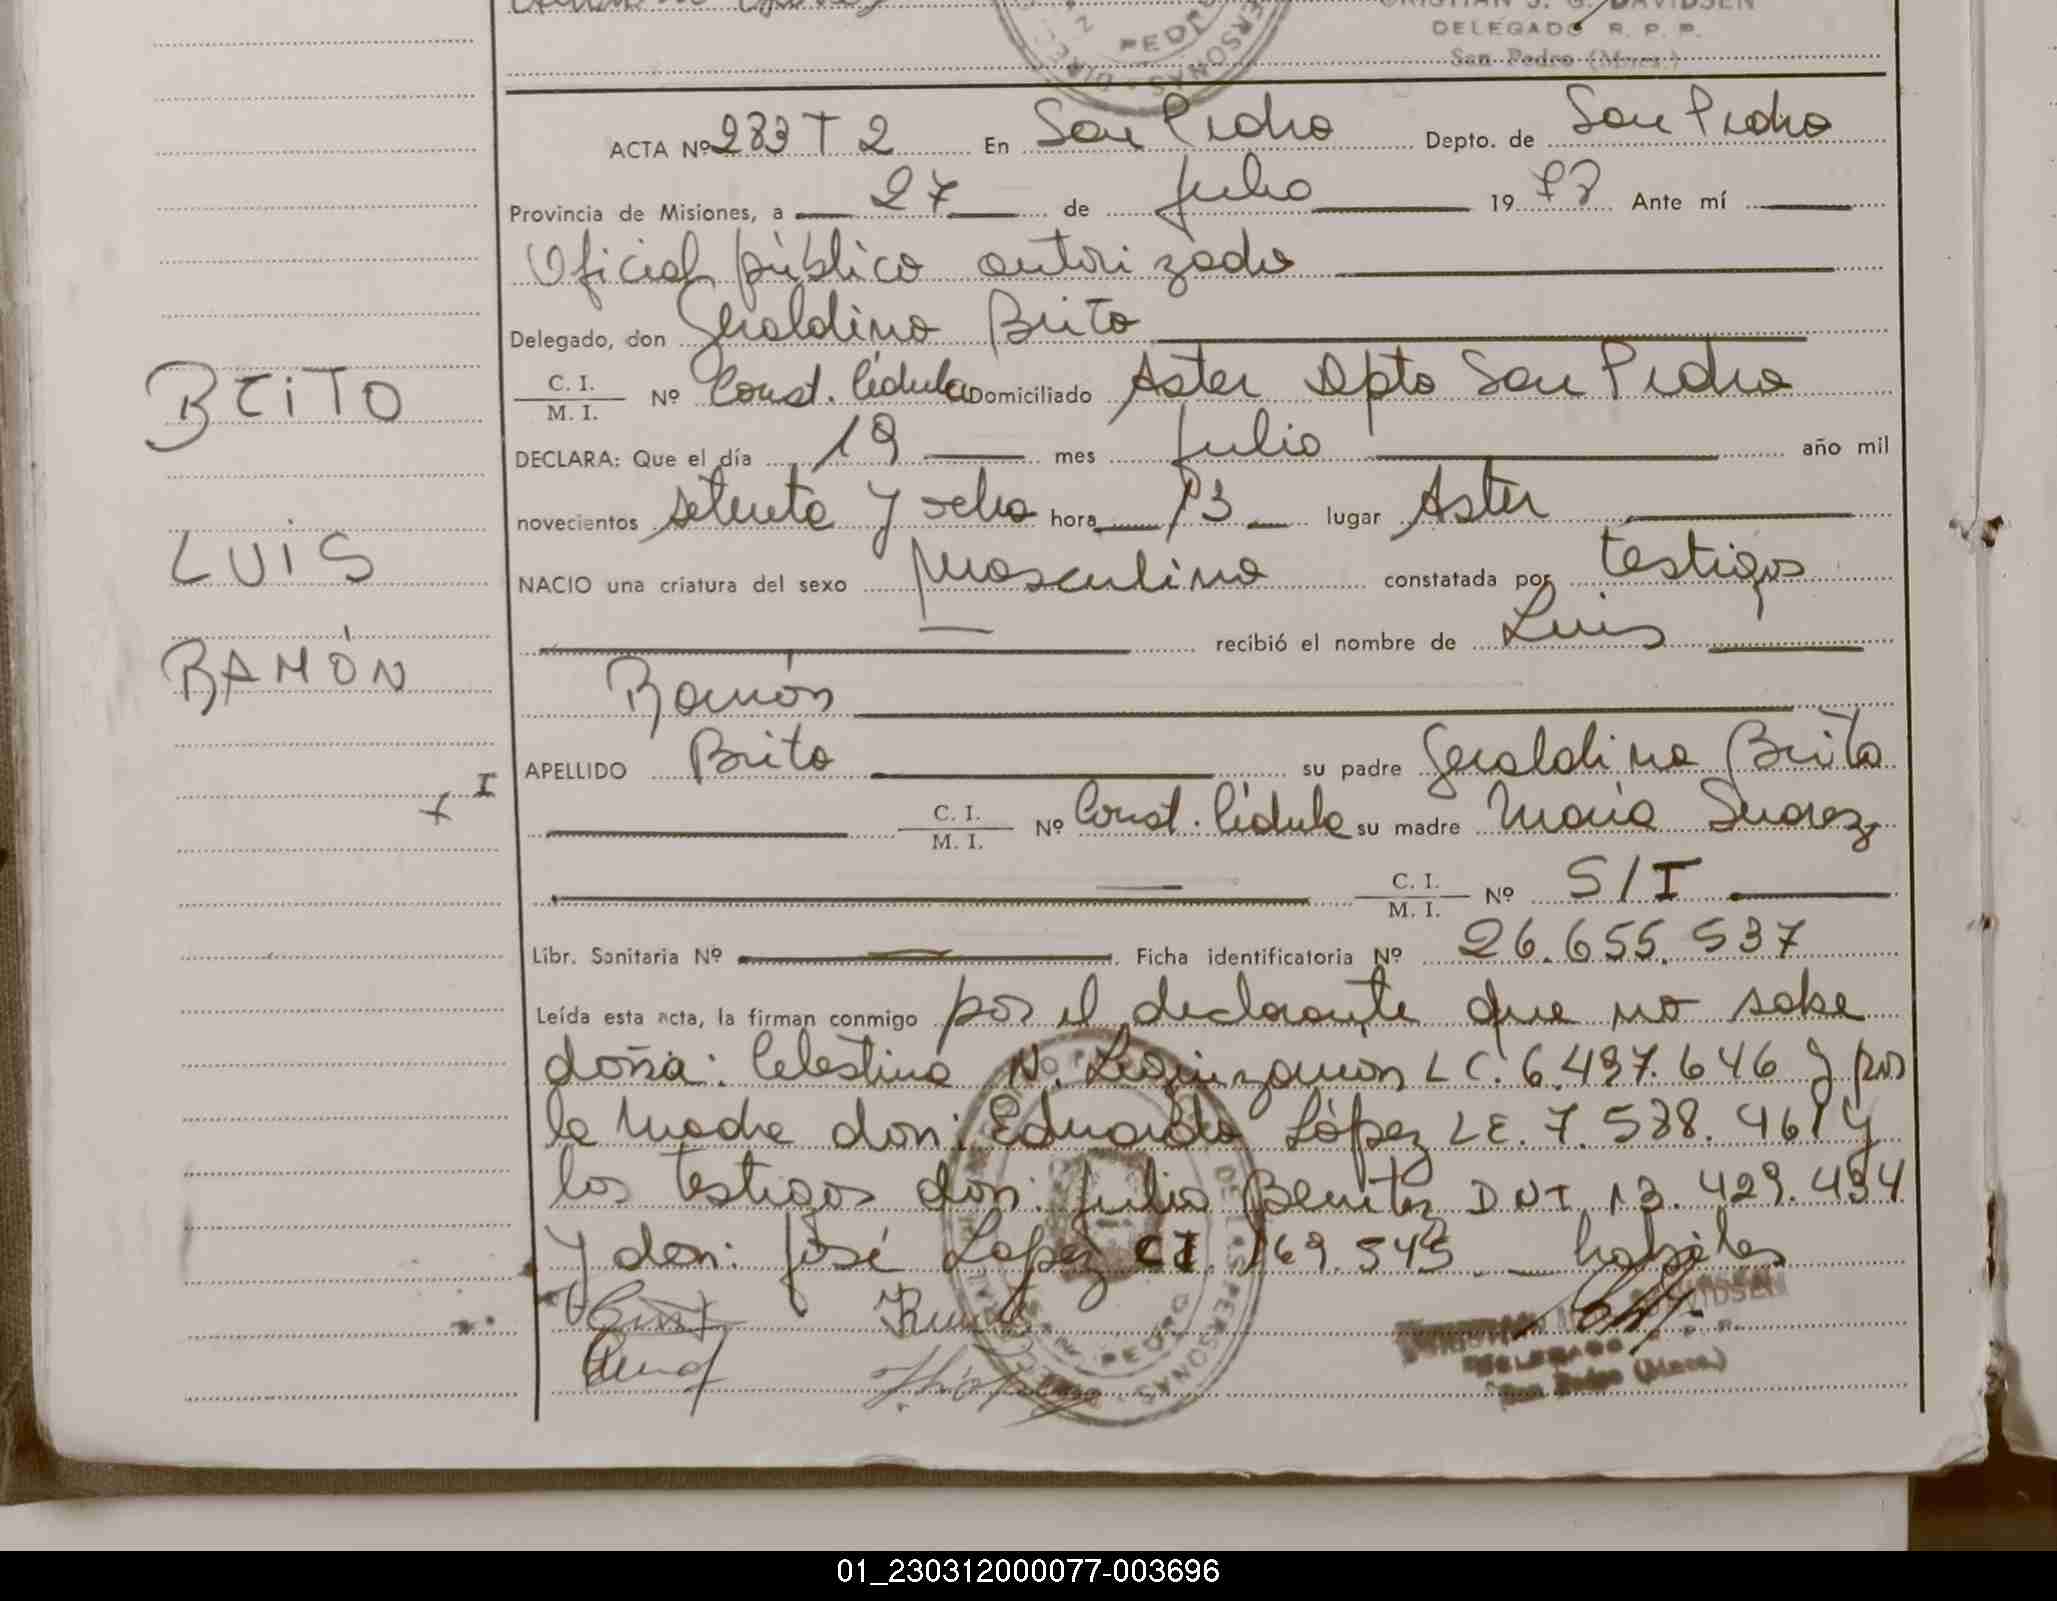 DELEGADO R. P. P.
San Pedro (Mnes.)
ACTA Nº 283 T 2 En San Pedro Depto. de San Pedro
Provincia de Misiones, a 27 de Julio 1978 Ante mí
Oficial público autorizado
Delegado, don Geraldino Brito
C. I. / M. I. Nº Const. Cédula Domiciliado Aster Dpto San Pedro
DECLARA: Que el día 19 mes Julio año mil
novecientos setenta y ocho hora 13 lugar Aster
NACIO una criatura del sexo masculino constatada por testigos
recibió el nombre de Luis
Ramón
APELLIDO Brito su padre Geraldino Brito
C. I. / M. I. Nº Const. Cédula su madre María Suarez
C. I. / M. I. Nº S/I
Libr. Sanitaria Nº Ficha identificatoria Nº 26.655.537
Leída esta acta, la firman conmigo por el declarante que no sabe
doña: Celestina N. Leguizamón LC. 6.497.646 y por
la madre don: Eduardo López LE. 7.588.461 y
los testigos don: Julio Benitez DNI 13.429.494
y don: José Lopez CI. 169.545 habiles
DELEGADO
San Pedro (Mnes.)
BRITO
LUIS
RAMÓN
01_230312000077-003696